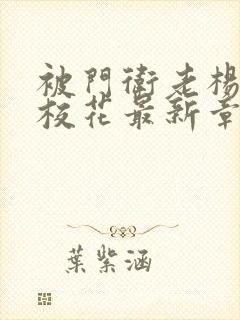 被門衛老楊
校花最新章
葉紫涵